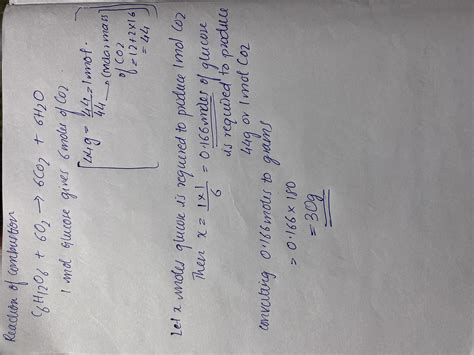 Reaction of combustion
C6H12O6 + 6O2 → 6CO2 + 6H2O
1 mol glucose gives 6 moles of CO2.
= 44/44 = 1 mol.
44 → (molar mass
of CO2
= 12+2×16
= 44
Let x moles glucose is required to produce 1 mol CO2
Then x = 1×1/6 = 0.166 moles of glucose
is required to produce
44g or 1 mol CO2
converting 0.166 moles to grams
= 0.166 × 180
= 30g